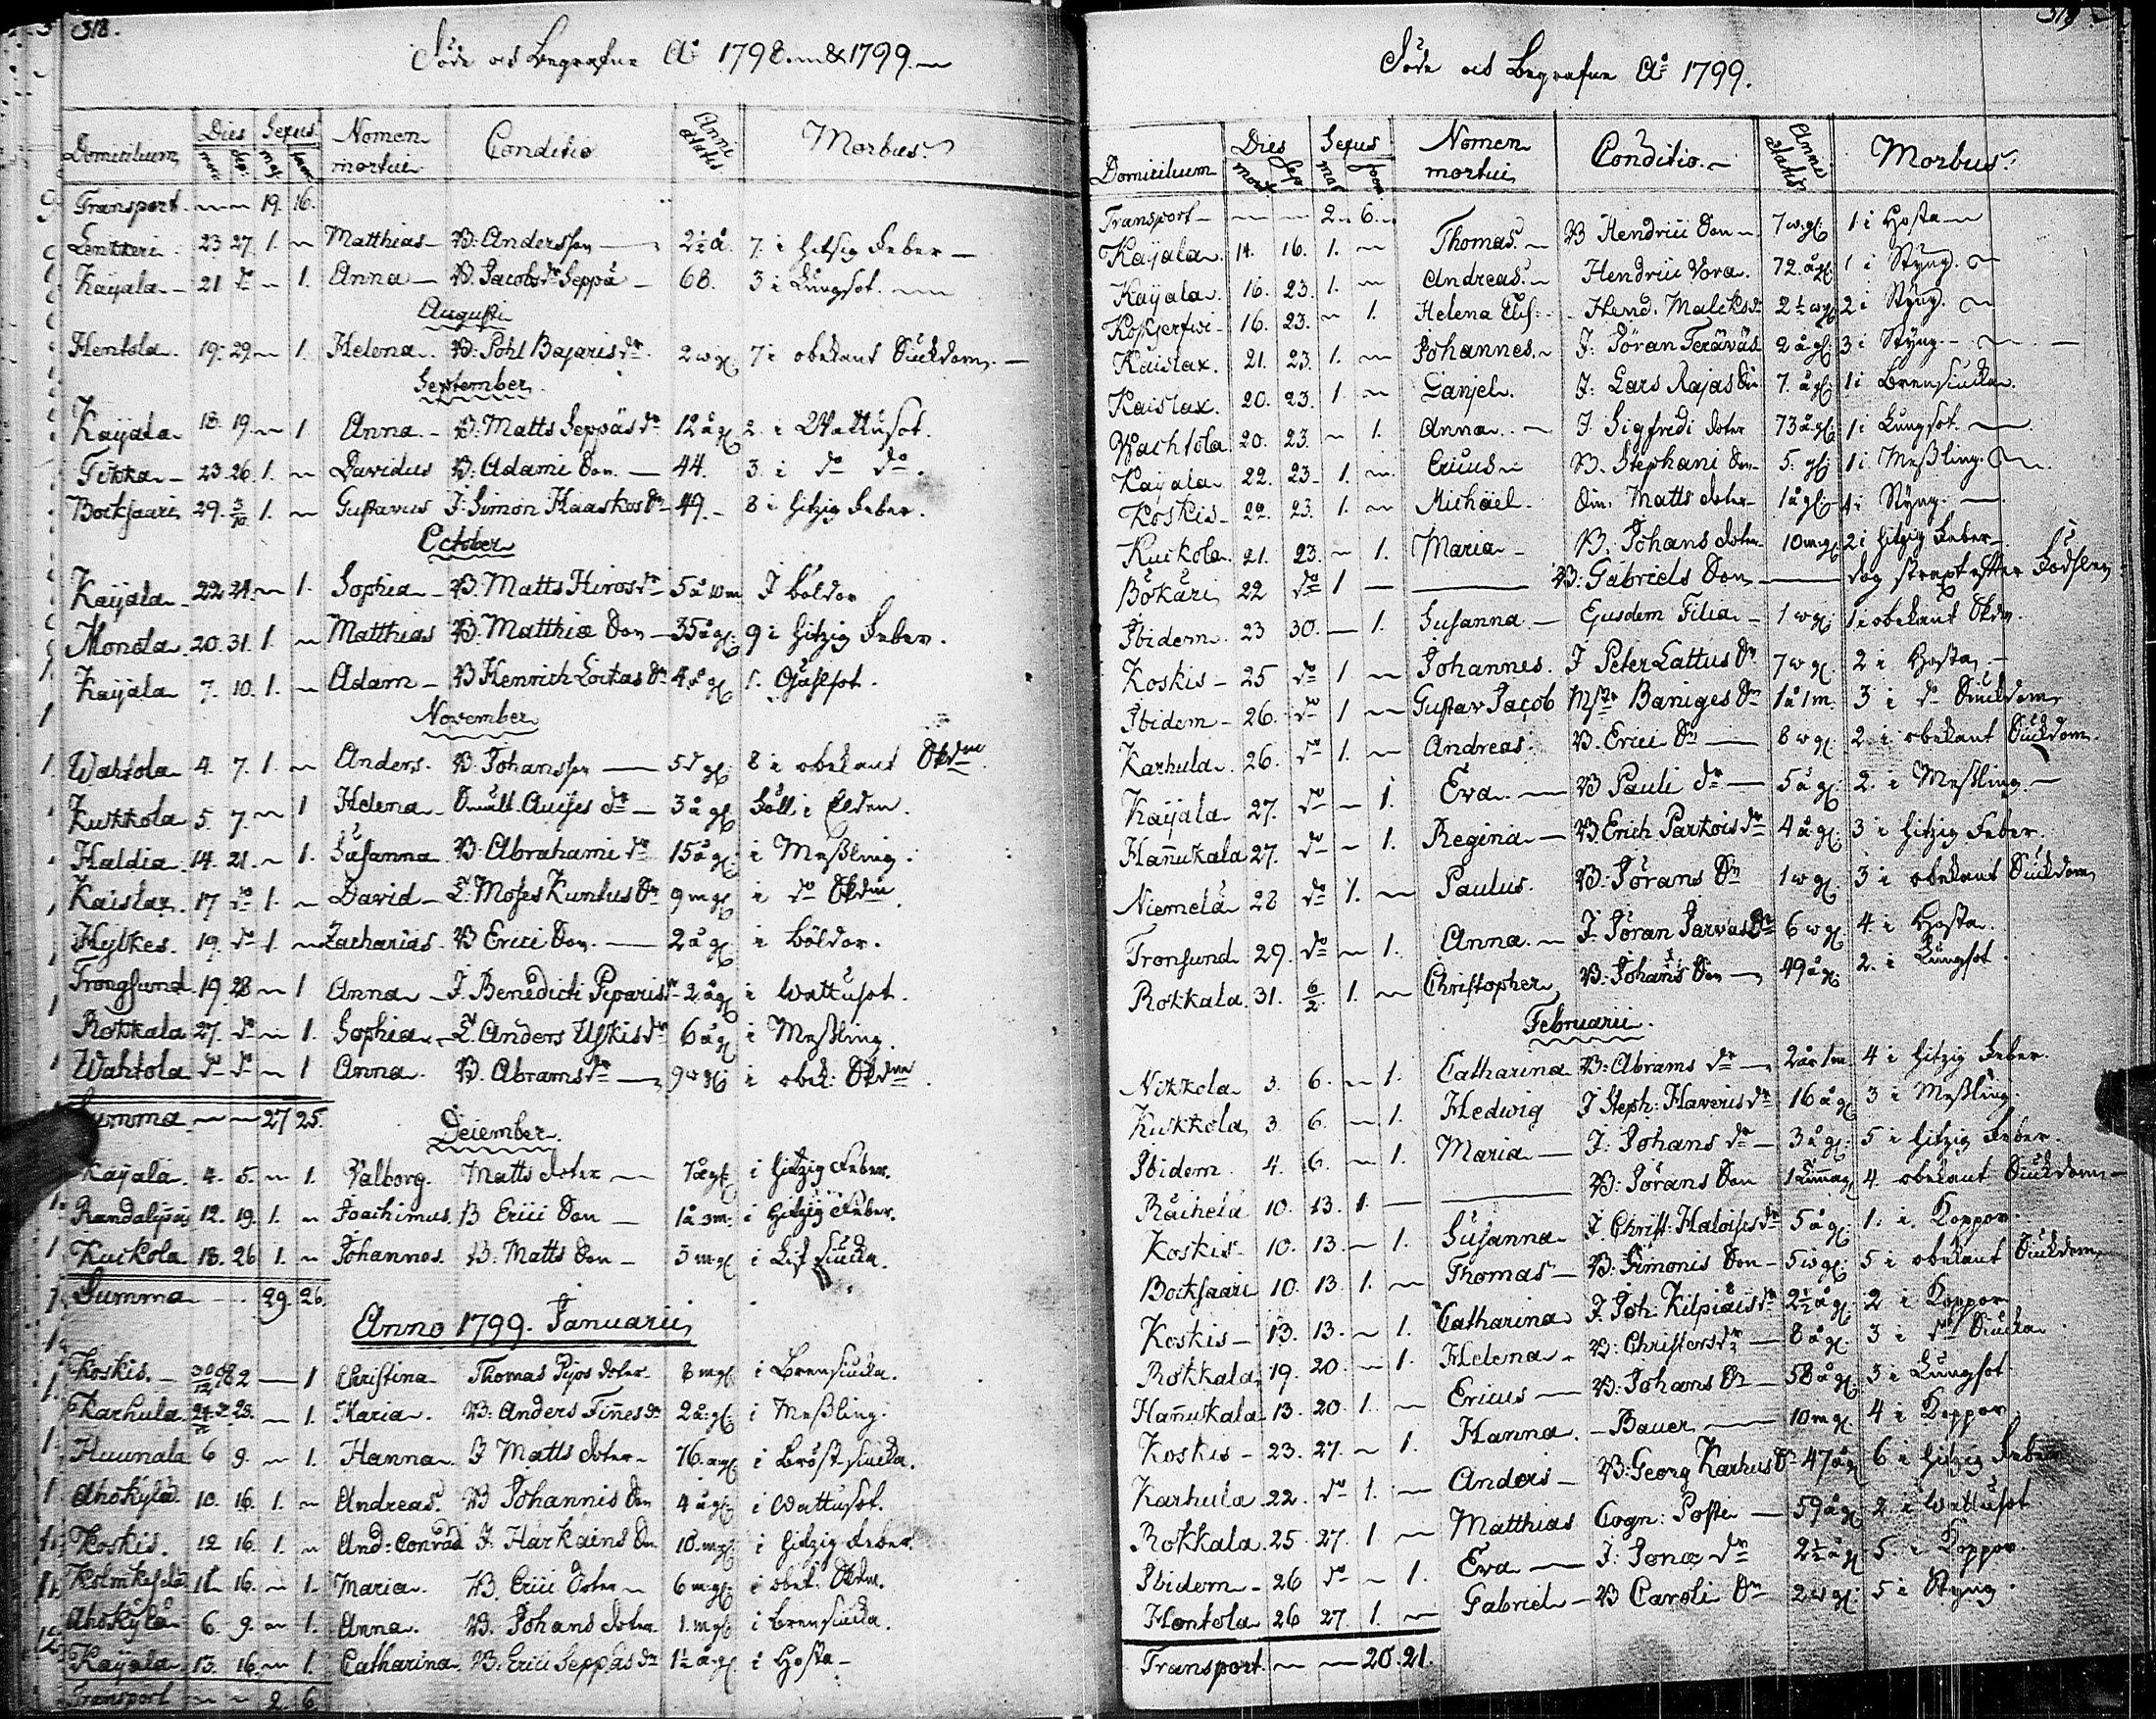 318.
Döde och Begrafne Aº 1798. & 1799.
Domicilium Dies Sexus Nomen mortui Conditio Anni ætatis Morbus
mort. Sep. mas. fœm.
Transport 19. 16.
Lenkkeri 23 27. 1. Matthias B. Andersson 2½ å. 7. i hitsig Feber
Kayala 21 dº 1. Anna B. Jacobs dr Seppä 68. 3 i Lungsot.
Augusti
Hentola. 19. 29. 1. Helena B. Pohl Bajaris dr 2 w gl. 7 i obekant Siukdom.
September
Kayala 18. 19. 1 Anna B. Matts Seppäs dr 12 å gl. 2. i Wattusot.
Tikka 23 26. 1. Davidus B. Adami Son. 44. 3. i dº dº.
Bocksaari 29. 3/10. 1. Gustavus I. Simon Haaskos Sn 49. 8 i hitzig Feber.
October
Kayala 22 24. 1. Sophia B. Matts Hiros dr 5 å 10 m I böldor
Monola. 20. 31. 1. Matthias B. Matthiæ Son 35 å gl. 9 i hitzig Feber.
Kayala 7. 10. 1. Adam B Henrich Loikas Sn 4 å gl.
November
Wahtola 4. 7. 1. Anders. B. Johansson 5 d gl. 8 i obekant Skdm.
Kukkola 5. 7. 1 Helena 3 å gl. i Elden.
Haldia. 14. 21. 1. Susanna B. Abrahami dr 15 å gl. i Messling.
Kaislax. 17 dº 1. David L. Moses Kuntus Sn 9 m gl. i dº Skdm.
Hylkes. 19. dº 1. Zacharias. B Erici Son. 2 å gl. i böldor.
Trongsund 19. 28 1 Anna I. Benedicti Piparis dr 2 å gl. i Wattusot.
Rokkala 27. dº 1. Sophia L. Anders Uskis dr 6 å gl. i Messling.
Wahtola dº dº 1 Anna. B. Abrams dr 9 w gl. i obek: Skdm.
Summa 27 25.
December.
Kayala. 4. 5. 1. Valborg. Matts doter 7 å gl. i hitzig Feber.
12. 19. 1. Joachimus. B Erici Son 1 å 3 m. i hitzig Feber.
Kuckola 18. 26 1. Johannes. B. Matts Son 3 m gl
Summa 29. 26.
Anno 1799. Januarii
Koskis. 30/12 98 2 1 Christina Thomas Pyös doter 8 m gl i Brensiuka.
Karhula 1. Maria. B. Anders Tiñes dr 2 å gl. i Messling.
Huunala 6 9. 1. Hanna I Matts doter 76. å gl i Bröstsiuka.
Ahokylä 10. 16. 1. Andreas. B Johannis Son 4 å gl. i Wattusot.
Koskis. 12 16. 1. And: Conrad I. Harkains Sn 10. m gl. i hitzig Feber.
16. 1. Maria. B. Erici Doter 6 m gl. i obek. Skdm.
Ahokylä 6. 9. 1. Anna. B. Johans doter 1. m gl i Brensiuka.
Kayala 13. 16. 1. Catharina. B. Erici Seppäs dr 1½ å gl i Hosta
Transport 2. 6.
319
Döde och Begrafne Aº 1799.
Domicilium Dies Sexus Nomen mortui Conditio. Anni ætatis Morbus
mort. Sep. mas. fœm.
Transport 2. 6.
Kayala 14. 16. 1. Thomas B Hendrici Son 7 w gl. 1 i Hosta
Kayala. 16. 23. 1. Andreas. Hendrici Vora. 72. å gl. 1 i Styng.
16. 23. 1. Helena Elis: Hend. Maliks dr 2½ w gl 2 i Styng.
Kaislax. 21. 23. 1. Johannes. I: Jöran Terävas 2 å gl. 3 i Styng.
Kaislax. 20. 23. 1. Danjel. I: Lars Rajas Sn 7. å gl. 1 i Brensiucka.
Wachtola 20. 23. 1. Anna I Sigfredi doter 73 å gl. 1 i Lungsot.
Kayala 22. 23. 1. Ericus B. Stephani Son 5. gl. 1 i Messling.
Koskis 22. 23. 1. Michäel. Matts doter 1 å gl. i Styng.
Kuckola 21. 23. 1. Maria B. Johans doter 10 m gl 2 i hitzig Feber.
Bokari 22 dº 1 B: Gabriels Son dog strax efter Födslen
Ibidem. 23 30. 1. Susanna Ejusdem Filia 1 w gl. 1 i obekant Skdm.
Koskis 25 dº 1 Johannes. I Peter Lattus Sn 7 w gl. 2 i Hosta
Ibidem 26. dº 1 Gustav Jacob Baniges Sn 1 å 1 m. 3 i dº Siuckdom
Karhula 26. dº 1. Andreas. B. Erici Sn 8 w gl. 2 i obekant Siuckdom.
Kayala 27. dº 1. Eva B Pauli dr 5 å gl. 2 i Messling.
Hañukala 27. dº 1. Regina B. Erich Partois dr 4 å gl. 3 i hitzig Feber.
Niemelä 28 dº 1. Paulus. B: Jörans Sn 1 w gl. 3 i obekant Siuckdom
Tronsund 29. dº 1. Anna I. Jöran Parvas Dr 6 w gl. 4 i Hosta.
Rokkala. 31. 6/2. 1. Christopher B. Johans Son 49 å gl. 2. i Lungsot.
Februarii.
Nikkola 3. 6. 1. Catharina B: Abrams dr 2 år 1 m. 4 i hitzig Feber.
Kukkola 3. 6. 1. Hedwig I Steph: Haveris dr 16 å gl. 3 i Messling.
Ibidem. 4. 6. 1. Maria I. Johans dr 3 å gl. 5 i hitzig Feber.
Räihelä 10. 13. 1. B: Jörans Son 4 obekant Siuckdom
Koskis 10. 13. 1. Susanna I. Christ: Haloises dr 5 å gl. 1. i Koppor.
Bocksaari 10. 13 1. Thomas B: Simonis Son 5 w gl. 5 i obekant Siuckdom
Koskis 13. 13. 1. Catharina I. Joh: Kilpiäis dr 2½ å gl. 2 i Koppor
Rokkala 19. 20. 1. Helena B: Christers dr 8 å gl. 3 i dº Siucka
Hañukala 13. 20 1. Ericus B: Johans Sn 58 å gl. 3 i Lungsot
Koskis 23. 27. 1. Hanna. Bauer 10 m gl. 4 i Koppor
Karhula 22. dº 1. Anders B: Georg Karhus Sn 47 å gl 6 i hitzig Feber
Rokkala 25. 27. 1 Matthias Cogn: Posti 59 å gl 2 i Wattusot
Ibidem 26 dº 1. Eva I: Jonæ dr 2½ å gl 5. i Koppor
Hentola 26 27. 1. Gabriel B Caroli Sn 2 w gl. 5 i Styng.
Transport 20. 21.